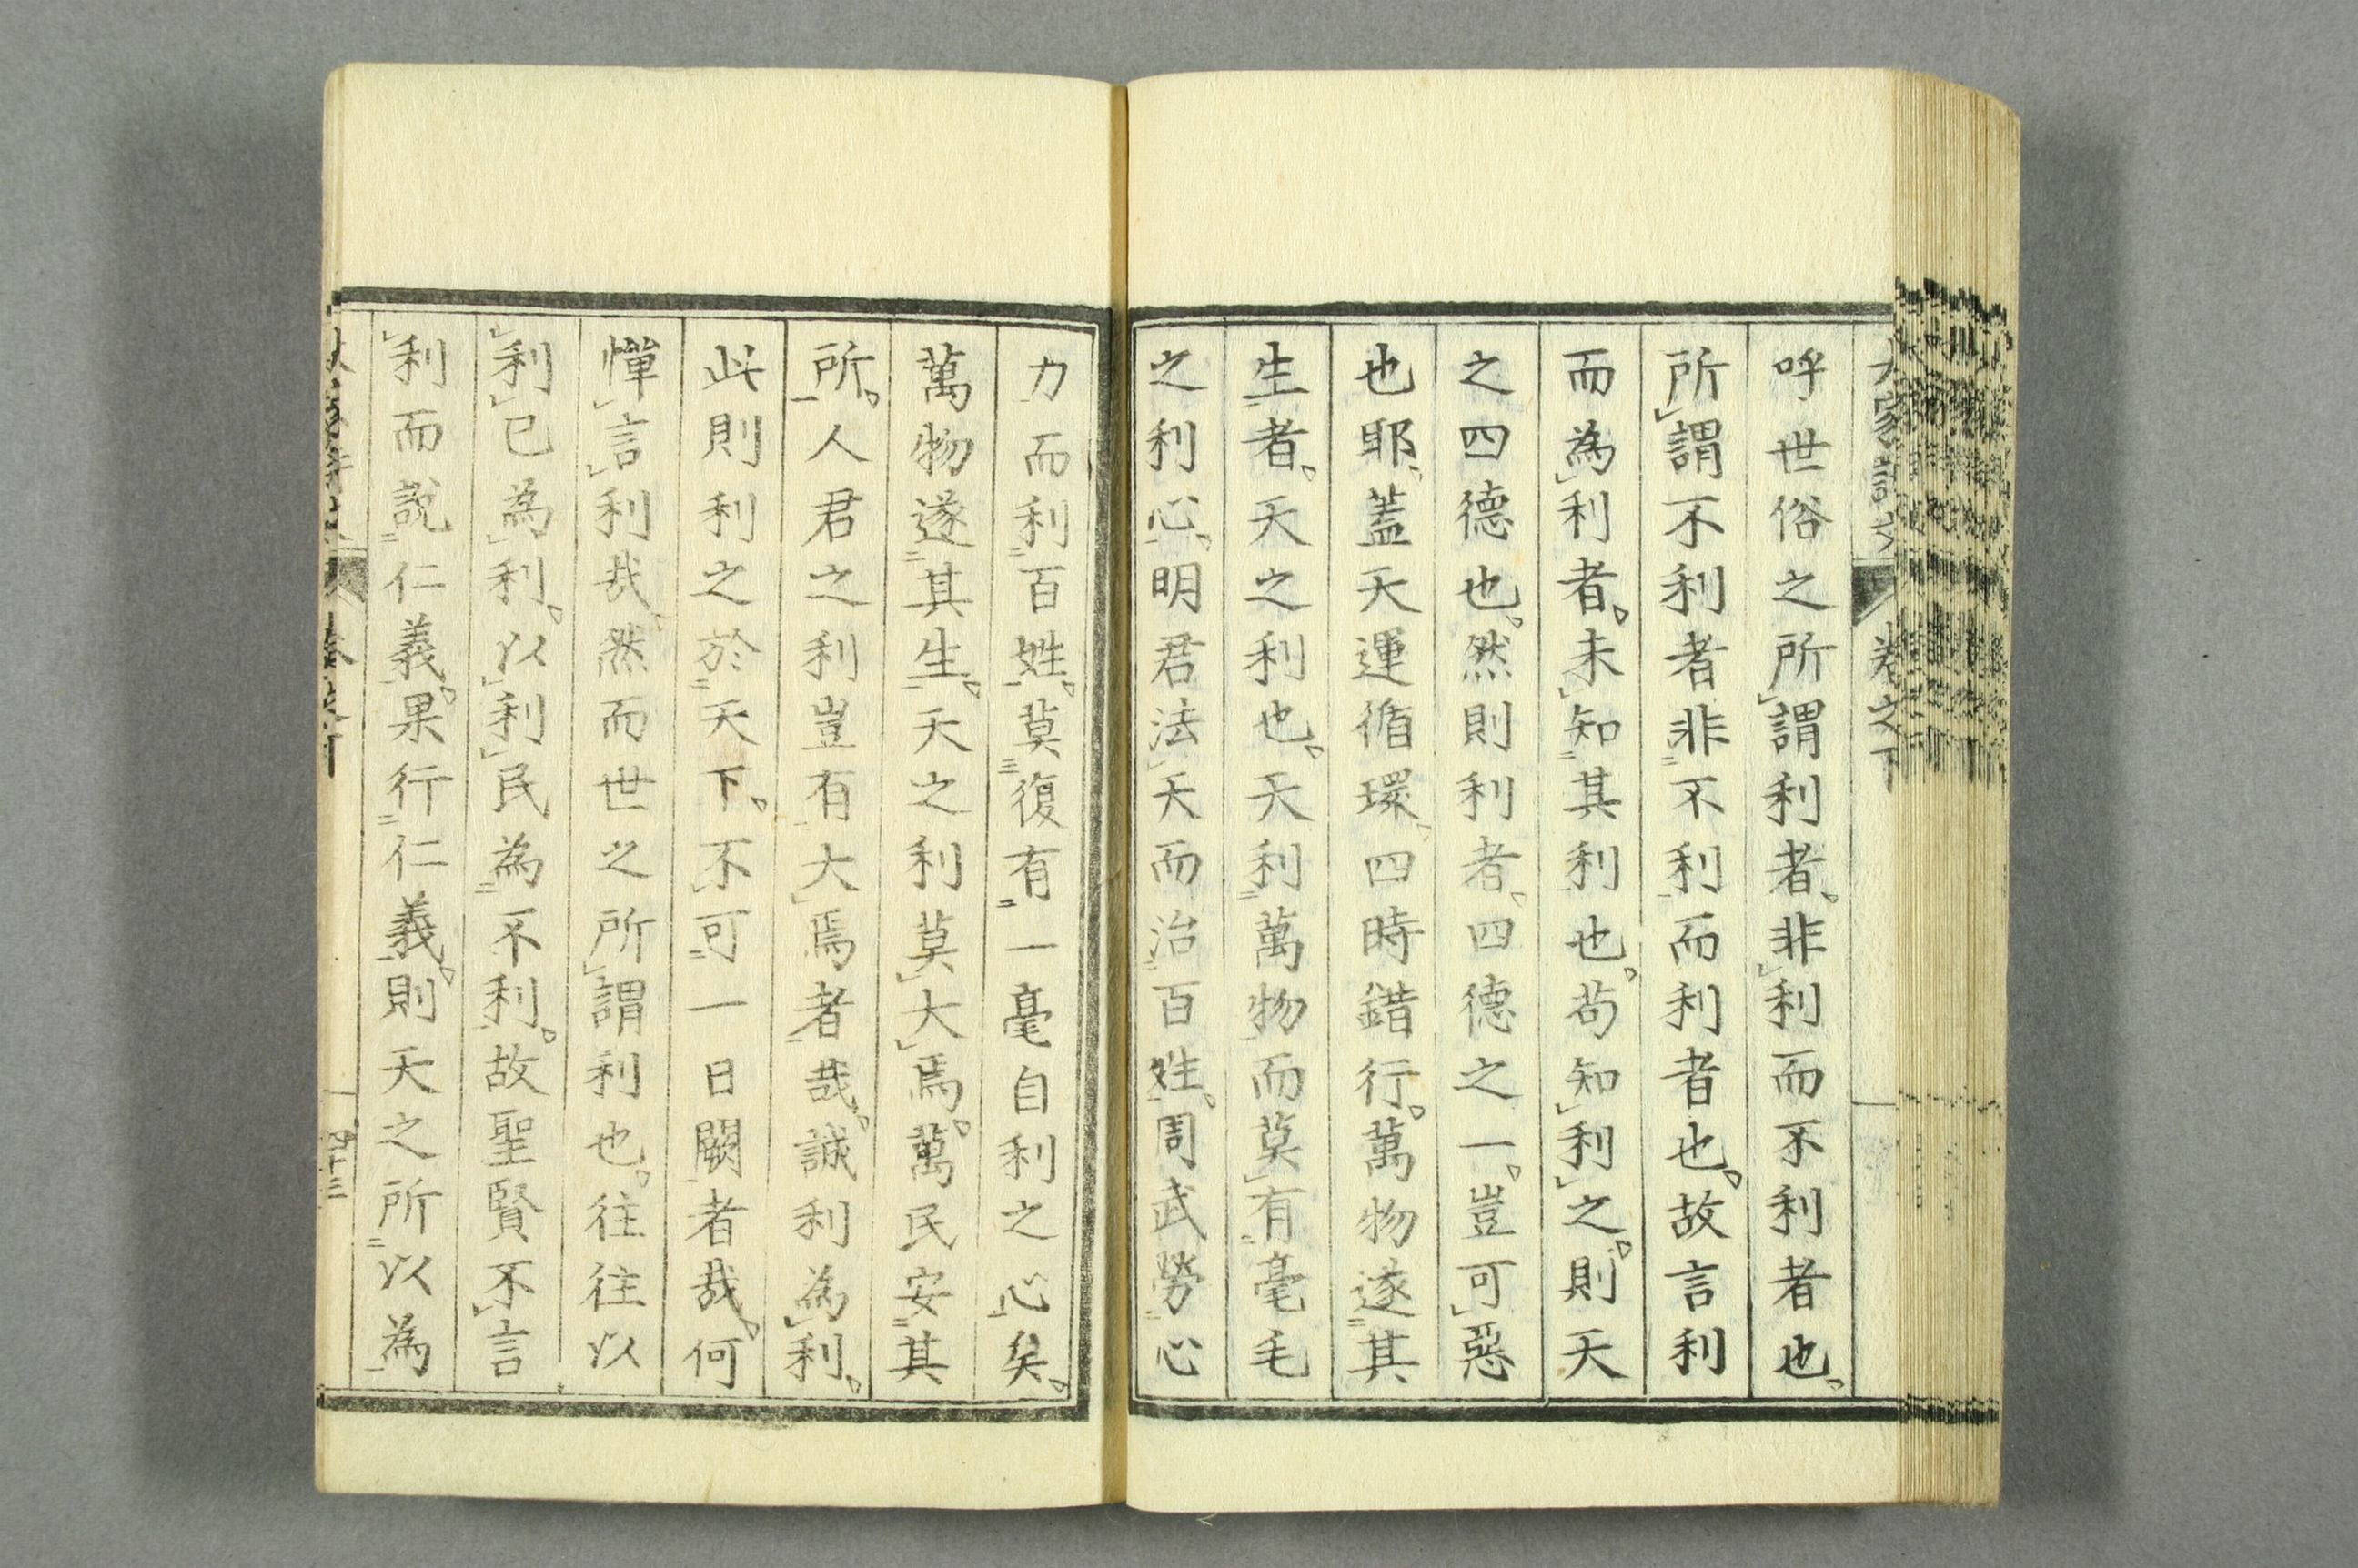 呼世俗之所謂利者非利而不利者也
所謂不利者非不利而利者也故言利
而為利者未知其利也苟知利之則天
之四德也然則利者四德之一豈可惡
也耶蓋天運循環四時錯行萬物遂其
生者天之利也天利萬物而莫有毫毛
之利心明君法天而治百姓周武勞心
力而利百姓莫復有一毫自利之心矣
萬物遂其生天之利莫大焉萬民安其
所人君之利豈有大焉者哉誠利為利
此則利之於天下不可一日闕者哉何
憚言利哉然而世之所謂利也往往以
利已為利以利民為不利故聖賢不言
利而說仁義果行仁義則天之所以為
卷之下
四十三